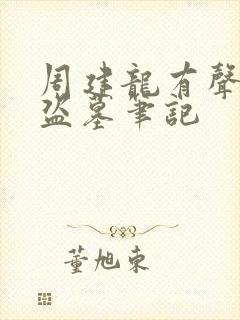 周建龍有聲
盜墓筆記
董旭東